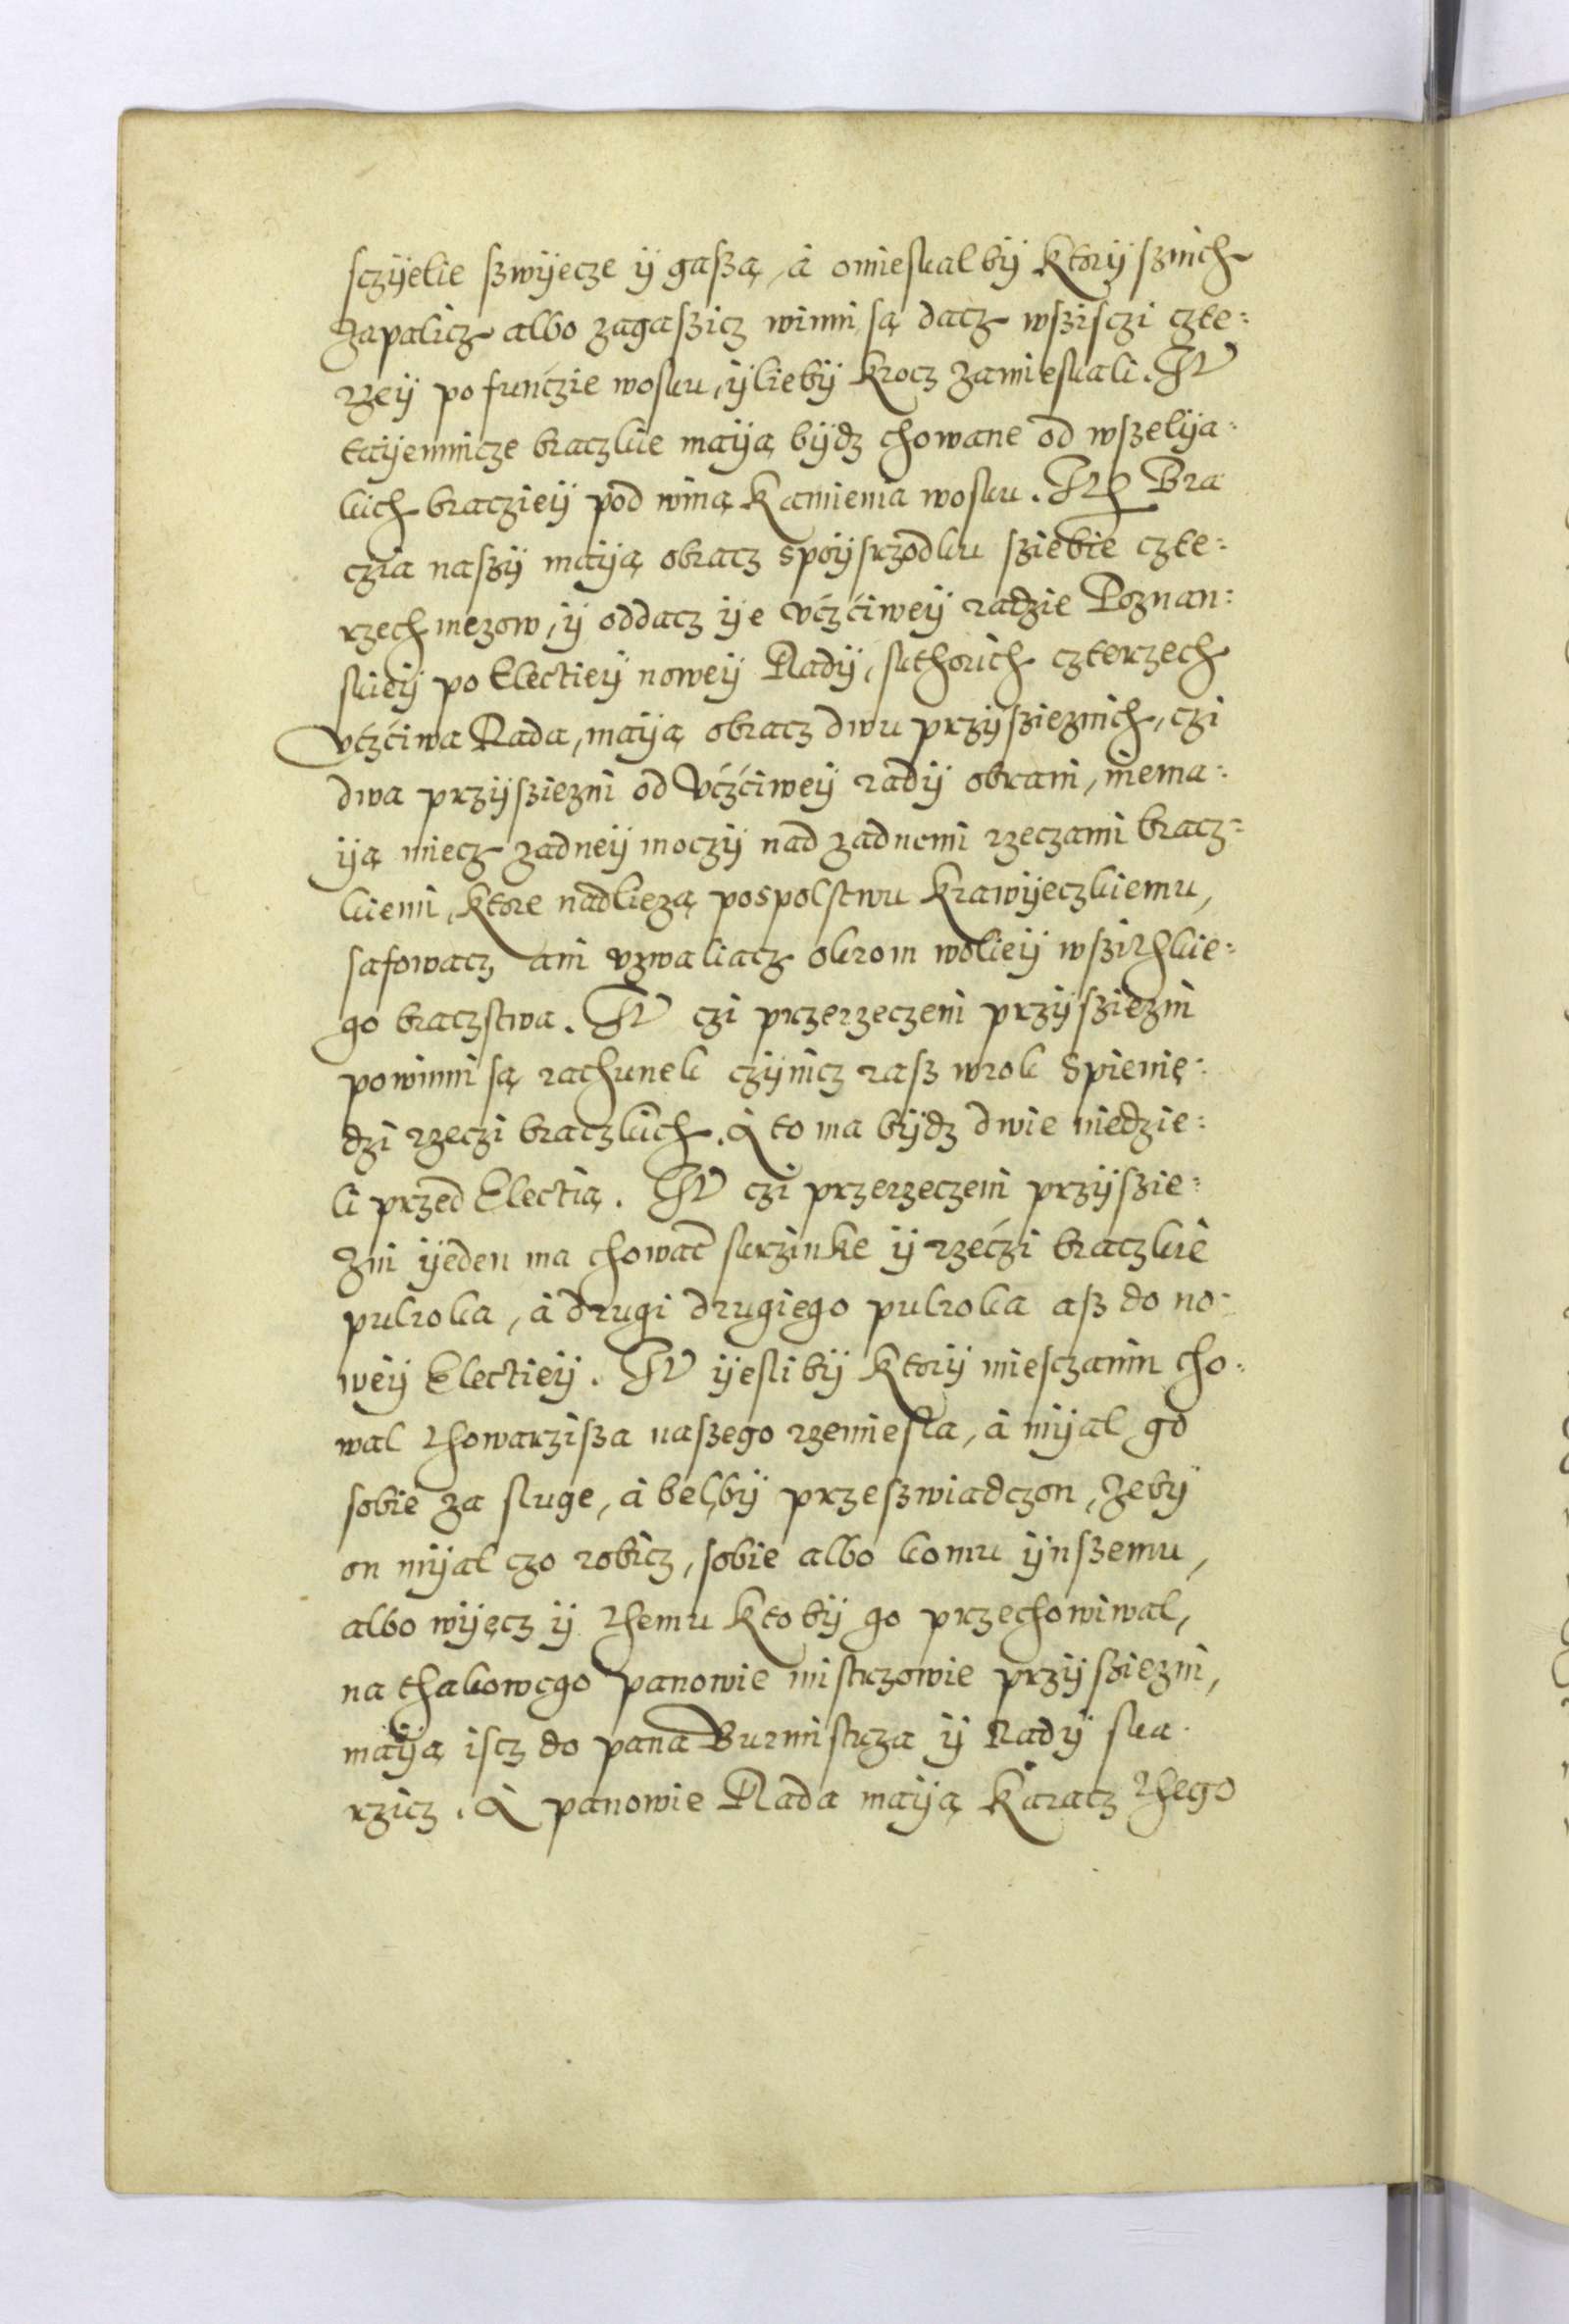 sczÿelie szwÿecze ÿ gaszą, à omieskal bÿ ktorÿ sznich
Zapalicz albo zagaszicz winni są dacz wszisczi czte:
rzeÿ po funczie wosku, ÿlie bÿ krocz zamieskali. It
taÿemnicze braczkie maÿą bÿdz chowane od wszelÿa:
kich braczieÿ pod winą Kamienia wosku. Ith Bra
czia naszÿ maÿą obracz spoÿsrzodku sziebie czte:
rzech męzow, ÿ oddacz ÿe vczciweÿ radzie Poznan:
skieÿ po Electieÿ noweÿ Radÿ, skthorich czterzech
vczciwa Rada, maÿą obracz dwu przÿszieznich, czi
dwa przÿsziezni od vczciweÿ radÿ obrani, niema:
ÿą miecz zadneÿ moczÿ nad zadnemi rzeczami bracz:
kiemi, ktore nadliezą pospolstwu krawÿeczkiemu,
safowacz ani vzwaliacz okrom wolieÿ wszithkie:
go braczstwa. It czi przerzeczeni przÿsziezni
powinni są rachunek czÿnicz rasz wrok Spienię:
dzi rzeczi braczkich. A to ma bÿdz dwie niedzie:
li przed Electią. It czi przerzeczeni przÿszie:
zni ÿeden ma chowac skrzinke ÿ rzeczi braczkie
pulroka, à drugi drugiego pulroka asz do no:
weÿ Electieÿ. It ÿesli bÿ ktorÿ miesczanin cho:
wal thowarzisza naszego rzemiesla, à mÿal go
sobie za sluge, à bel bÿ przeszwiadczon, zebÿ
on mÿal czo robicz, sobie albo komu ÿnszemu,
albo wÿęcz ÿ themu kto bÿ go przechowiwal,
na thakowego panowie mistrzowie przÿsiezni,
maÿą iscz do pana Burmistrza ÿ Radÿ ska
rzicz. A panowie Rada maÿą Karacz thego